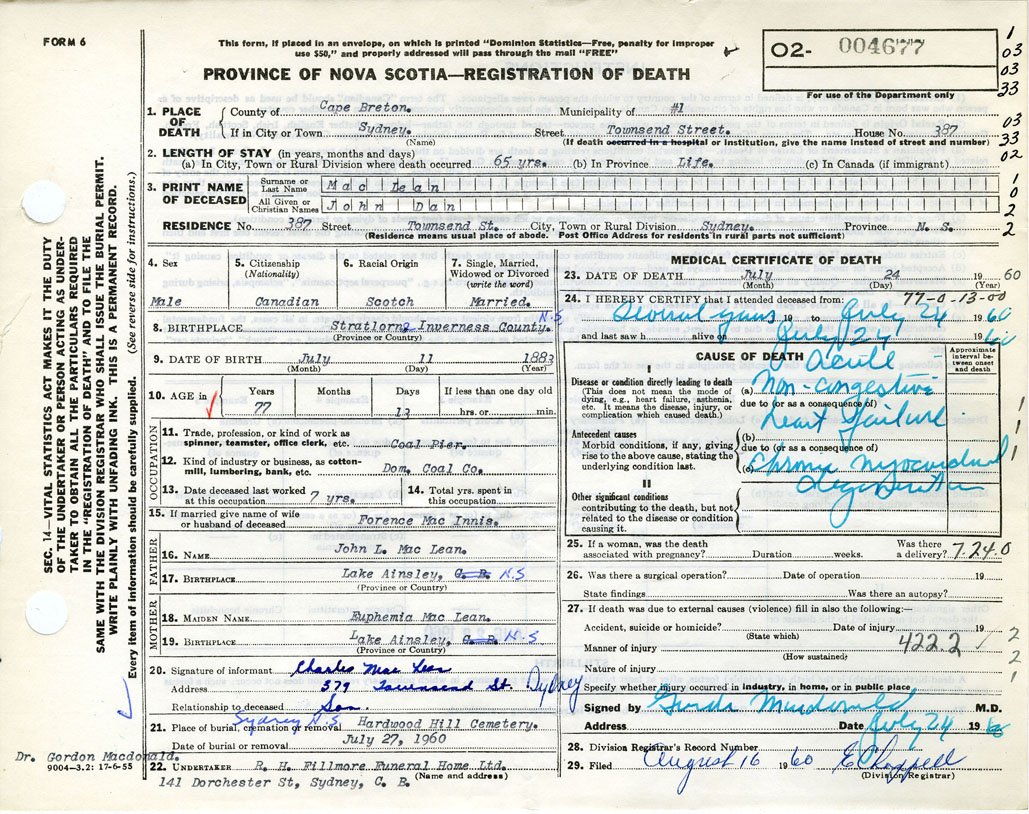 FORM 6
This form, if placed in an envelope, on which is printed "Dominion Statistics—Free, penalty for improper
use $50," and properly addressed will pass through the mail "FREE"
PROVINCE OF NOVA SCOTIA—REGISTRATION OF DEATH
02- 004677
For use of the Department only
1
03
03
33
03
33
02
1
0
2
2
SEC. 14—VITAL STATISTICS ACT MAKES IT THE DUTY
OF THE UNDERTAKER OR PERSON ACTING AS UNDER-
TAKER TO OBTAIN ALL THE PARTICULARS REQUIRED
IN THE "REGISTRATION OF DEATH" AND TO FILE THE
SAME WITH THE DIVISION REGISTRAR WHO SHALL ISSUE THE BURIAL PERMIT.
WRITE PLAINLY WITH UNFADING INK. THIS IS A PERMANENT RECORD.
Every item of information should be carefully supplied. (See reverse side for instructions.)
1. PLACE OF DEATH
County of Cape Breton. Municipality of #1
If in City or Town Sydney. Street Townsend Street. House No. 387
(Name) (If death occurred in a hospital or institution, give the name instead of street and number)
2. LENGTH OF STAY (in years, months and days)
(a) In City, Town or Rural Division where death occurred 65 yrs. (b) In Province Life. (c) In Canada (if immigrant)
3. PRINT NAME OF DECEASED
Surname or Last Name Mac Lean
All Given or Christian Names John Dan
RESIDENCE No. 387 Street Townsend St. City, Town or Rural Division Sydney. Province N. S.
(Residence means usual place of abode. Post Office Address for residents in rural parts not sufficient)
4. Sex
Male
5. Citizenship
(Nationality)
Canadian
6. Racial Origin
Scotch
7. Single, Married,
Widowed or Divorced
(write the word)
Married.
8. BIRTHPLACE Stratlorne Inverness County. N.S
(Province or County)
9. DATE OF BIRTH July 11 1883
(Month) (Day) (Year)
10. AGE in
Years Months Days If less than one day old
77 13 hrs. or min.
OCCUPATION
11. Trade, profession, or kind of work as
spinner, teamster, office clerk, etc. Coal Pier.
12. Kind of industry or business, as cotton-
mill, lumbering, bank, etc. Dom. Coal Co.
13. Date deceased last worked
at this occupation 7 yrs.
14. Total yrs. spent in
this occupation
15. If married give name of wife
or husband of deceased Forence Mac Innis.
FATHER
16. NAME John L. Mac Lean.
17. BIRTHPLACE Lake Ainsley, C. B. N.S
(Province or County)
MOTHER
18. MAIDEN NAME Euphemia Mac Lean.
19. BIRTHPLACE Lake Ainsley, C. B. N.S
(Province or County)
20. Signature of informant Charles Mac Lean
Address 379 Townsend St. Sydney
Relationship to deceased Son.
21. Place of burial, cremation or removal Sydney N.S. Hardwood Hill Cemetery.
Date of burial or removal July 27, 1960
Dr. Gordon Macdonald.
9004—3.2: 17-6-55
22. UNDERTAKER R. H. Fillmore Funeral Home Ltd.
(Name and address)
141 Dorchester St, Sydney, C. B.
MEDICAL CERTIFICATE OF DEATH
23. DATE OF DEATH July 24 1960
(Month) (Day) (Year)
24. I HEREBY CERTIFY that I attended deceased from: 77-0-13-00
Several years 19 to July 24 1960
and last saw h alive on July 24 1960
CAUSE OF DEATH
Approximate
interval be-
tween onset
and death
I
Disease or condition directly leading to death
(This does not mean the mode of
dying, e.g., heart failure, asthenia,
etc. It means the disease, injury, or
complication which caused death.)
Acute
(a) Non-congestive
due to (or as a consequence of)
heart failure
Antecedent causes
Morbid conditions, if any, giving
rise to the above cause, stating the
underlying condition last.
(b)
due to (or as a consequence of)
(c) Chronic myocardial
degeneration
II
Other significant conditions
contributing to the death, but not
related to the disease or condition
causing it.
1
1
1
25. If a woman, was the death
associated with pregnancy? Duration weeks. Was there
a delivery? 7.24.0
26. Was there a surgical operation? Date of operation 19
State findings Was there an autopsy?
27. If death was due to external causes (violence) fill in also the following:—
Accident, suicide or homicide? Date of injury 19
(State which)
Manner of injury 422.2
(How sustained)
Nature of injury
Specify whether injury occurred in industry, in home, or in public place
2
2
1
Signed by Gordon Macdonald M.D.
Address Date July 24 1960
28. Division Registrar's Record Number
29. Filed August 16 1960 E Chappell
(Division Registrar)